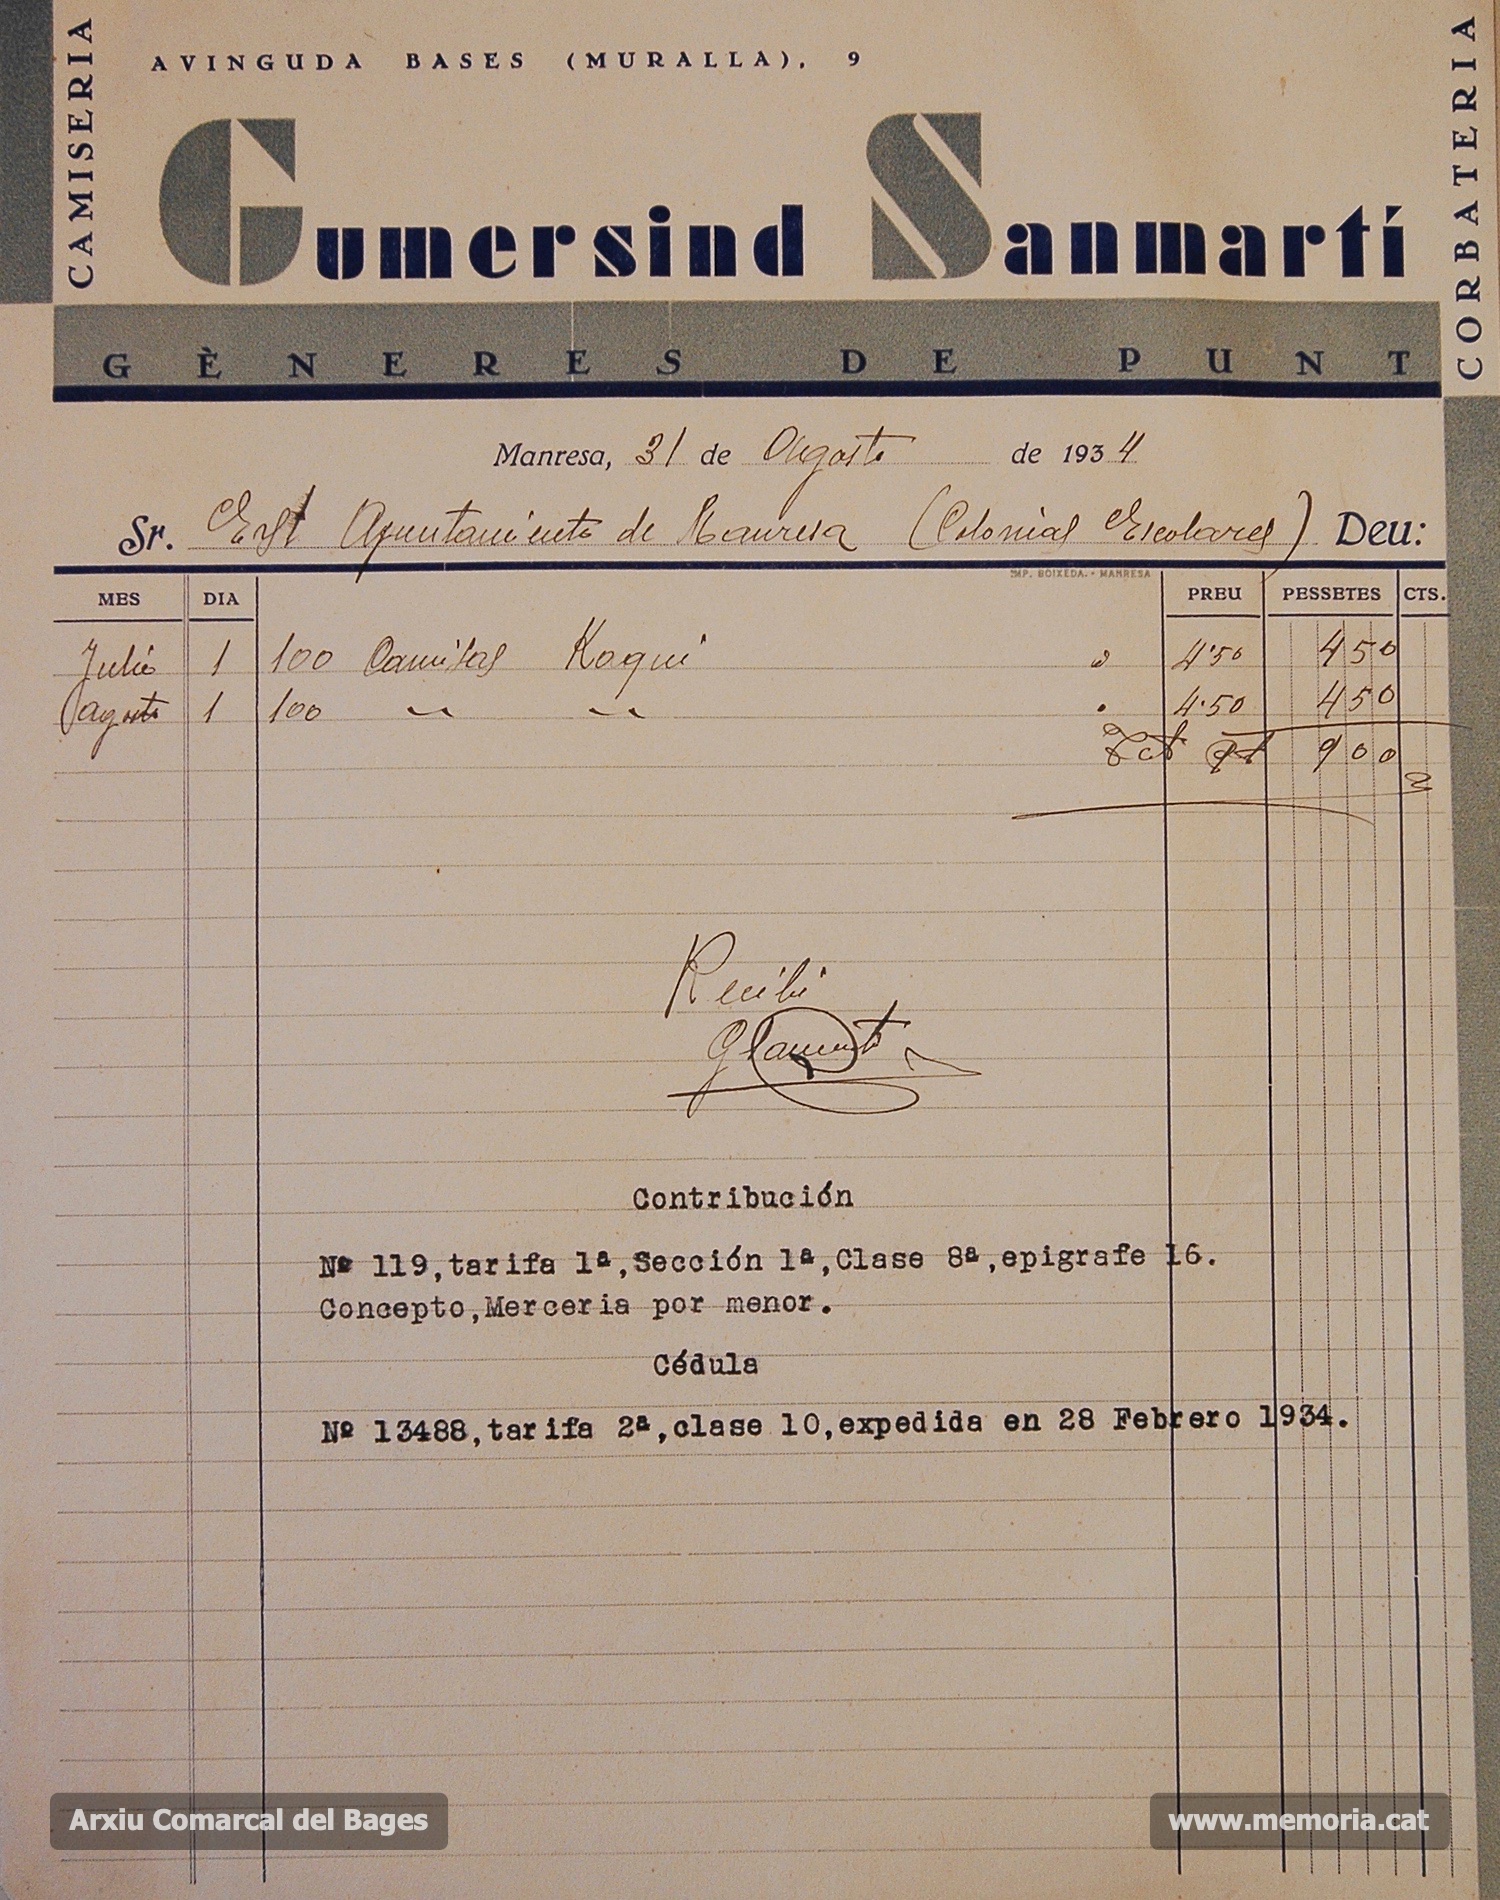 AVINGUDA BASES (MURALLA), 9
CAMISERIA
Gumersind Sanmartí
CORBATERIA
GÈNERES DE PUNT
Manresa, 31 de Agosto de 1934
Sr. Ayuntamiento de Manresa (Colonias Escolares) Deu:
IMP. BOIXEDA. - MANRESA
MES DIA PREU PESSETES CTS.
Julio 1 100 Camisas Kaqui " 4'50 450
Agosto 1 100 " " " 4'50 450
900
Recibi
GSanmarti
Contribución
Nº 119,tarifa 1ª,Sección 1ª,Clase 8ª,epigrafe 16.
Concepto,Merceria por menor.
Cédula
Nº 13488,tarifa 2ª,clase 10,expedida en 28 Febrero 1934.
Arxiu Comarcal del Bages
www.memoria.cat